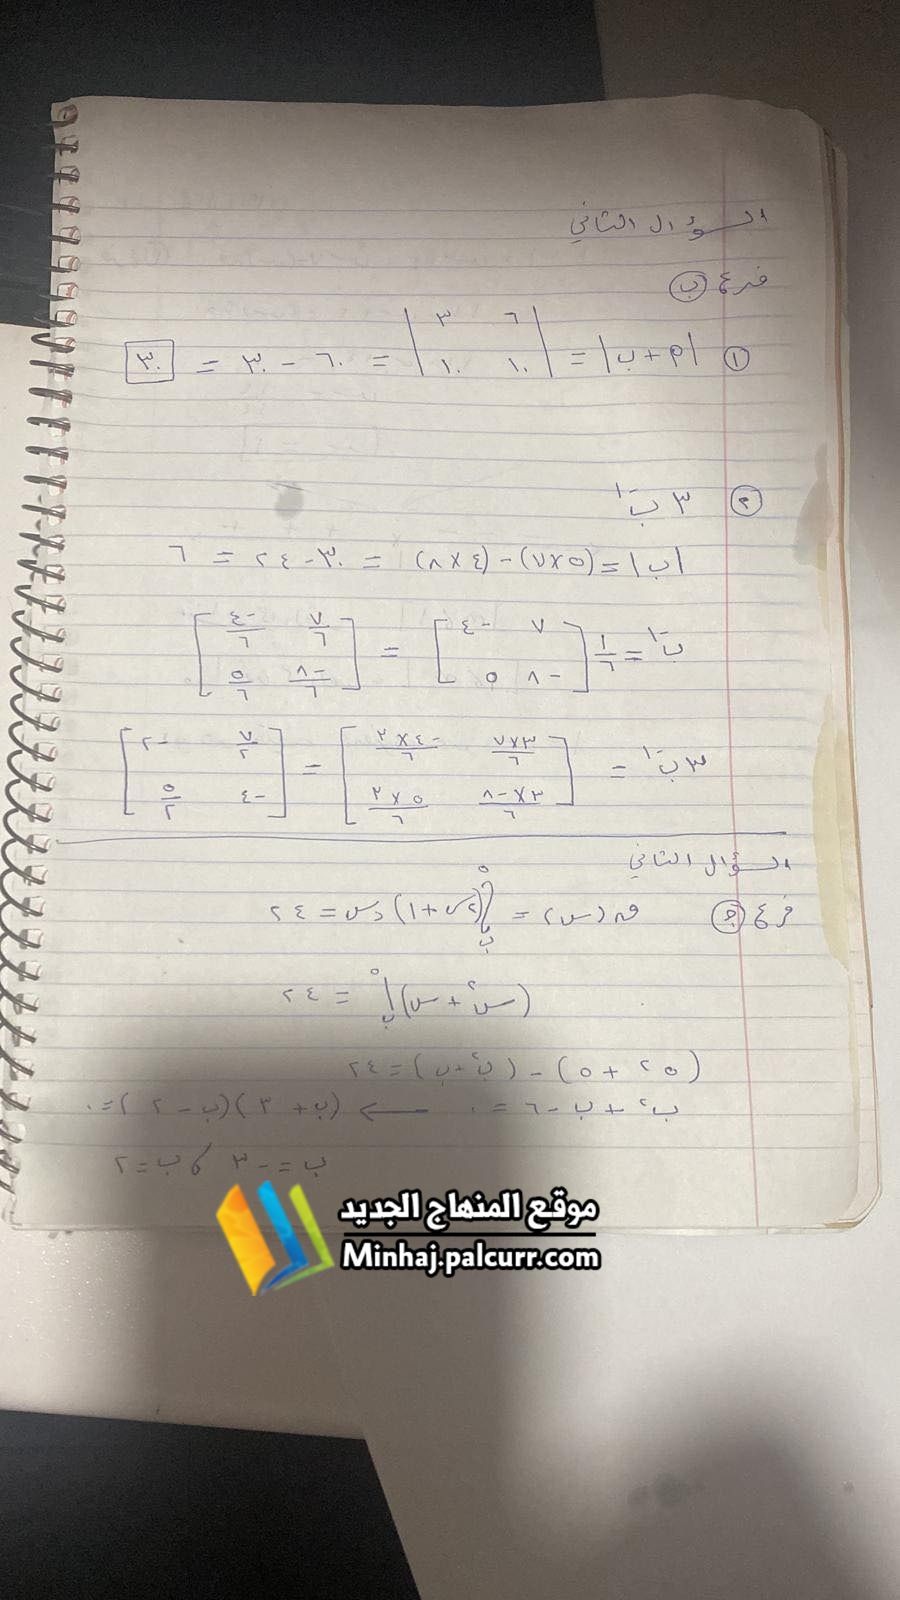 السؤال الثاني
فرع (ب)
(١) |أ + ب| = |٦ ٣|
|١٠ ١٠| = ٦٠ - ٣٠ = ٣٠
(٢) ٣ ب⁻¹
|ب| = (٥×٧) - (٤×٨) = ٣٠ - ٢٤ = ٦
ب⁻¹ = ١/٦ [٧ -٤] = [٧/٦ -٤/٦]
[-٨ ٥] [-٨/٦ ٥/٦]
٣ ب⁻¹ = [٣×٧/٦ -٤×٣/٦] = [٧/٢ -٢]
[٣×-٨/٦ ٥×٣/٦] [-٤ ٥/٢]
السؤال الثاني
فرع (ج) ق(س) = ∫ب^٥ (٢س+١) دس = ٢٤
(س² + س)|ب^٥ = ٢٤
(٢٥ + ٥) - (ب² + ب) = ٢٤
ب² + ب - ٦ = ٠ ← (ب + ٣)(ب - ٢) = ٠
ب = -٣ ، ب = ٢
موقع المنهاج الجديد
Minhaj.palcurr.com